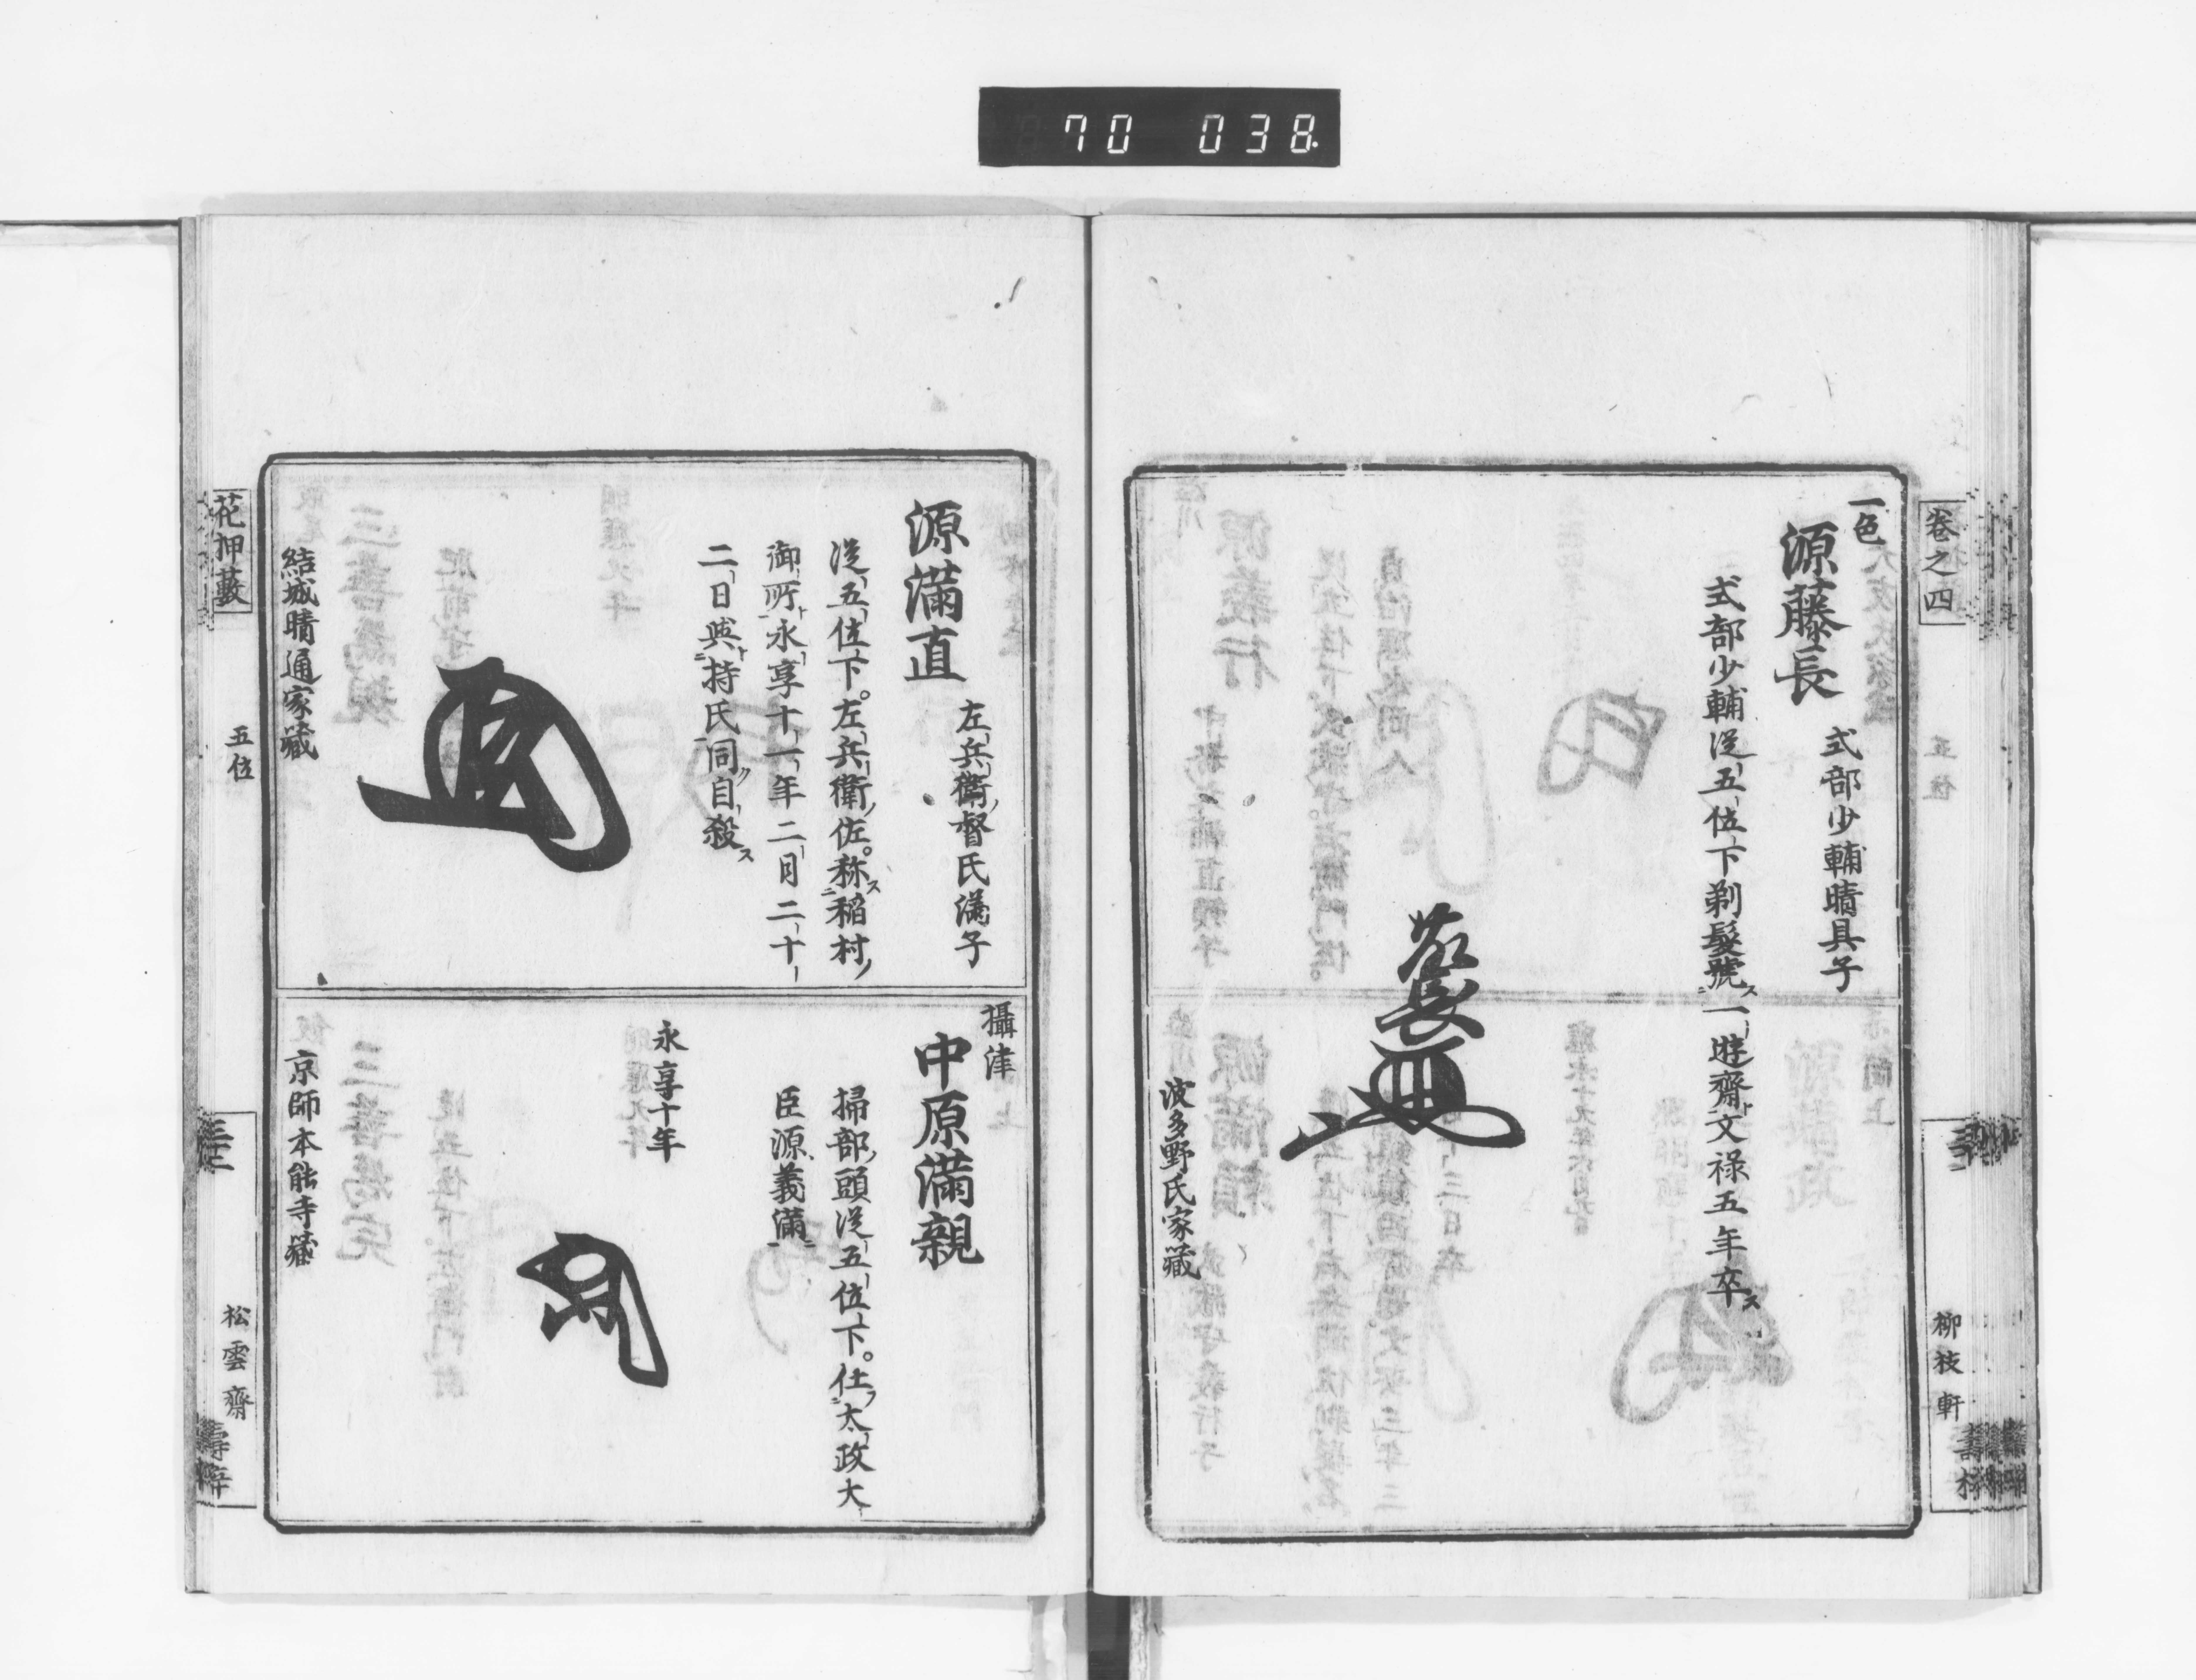 70 038
卷之四
五位
柳枝軒
一色
源藤長
式部少輔晴具子
式部少輔従五位下剃髮號一遊齋文禄五年卒
波多野氏家藏
源滿直
左兵衛督氏滿子
従五位下。左兵衛佐。称稲村
御所永享十一年二月二十
二日與持氏同自殺
結城晴通家藏
攝津
中原滿親
掃部頭従五位下。仕太政大
臣源義滿
永享十年
京師本能寺藏
花押藪
五位
松雲齋